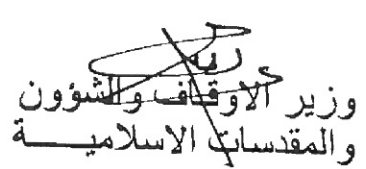 وزير الاوقاف والشؤون
والمقدسات الاسلاميـــة